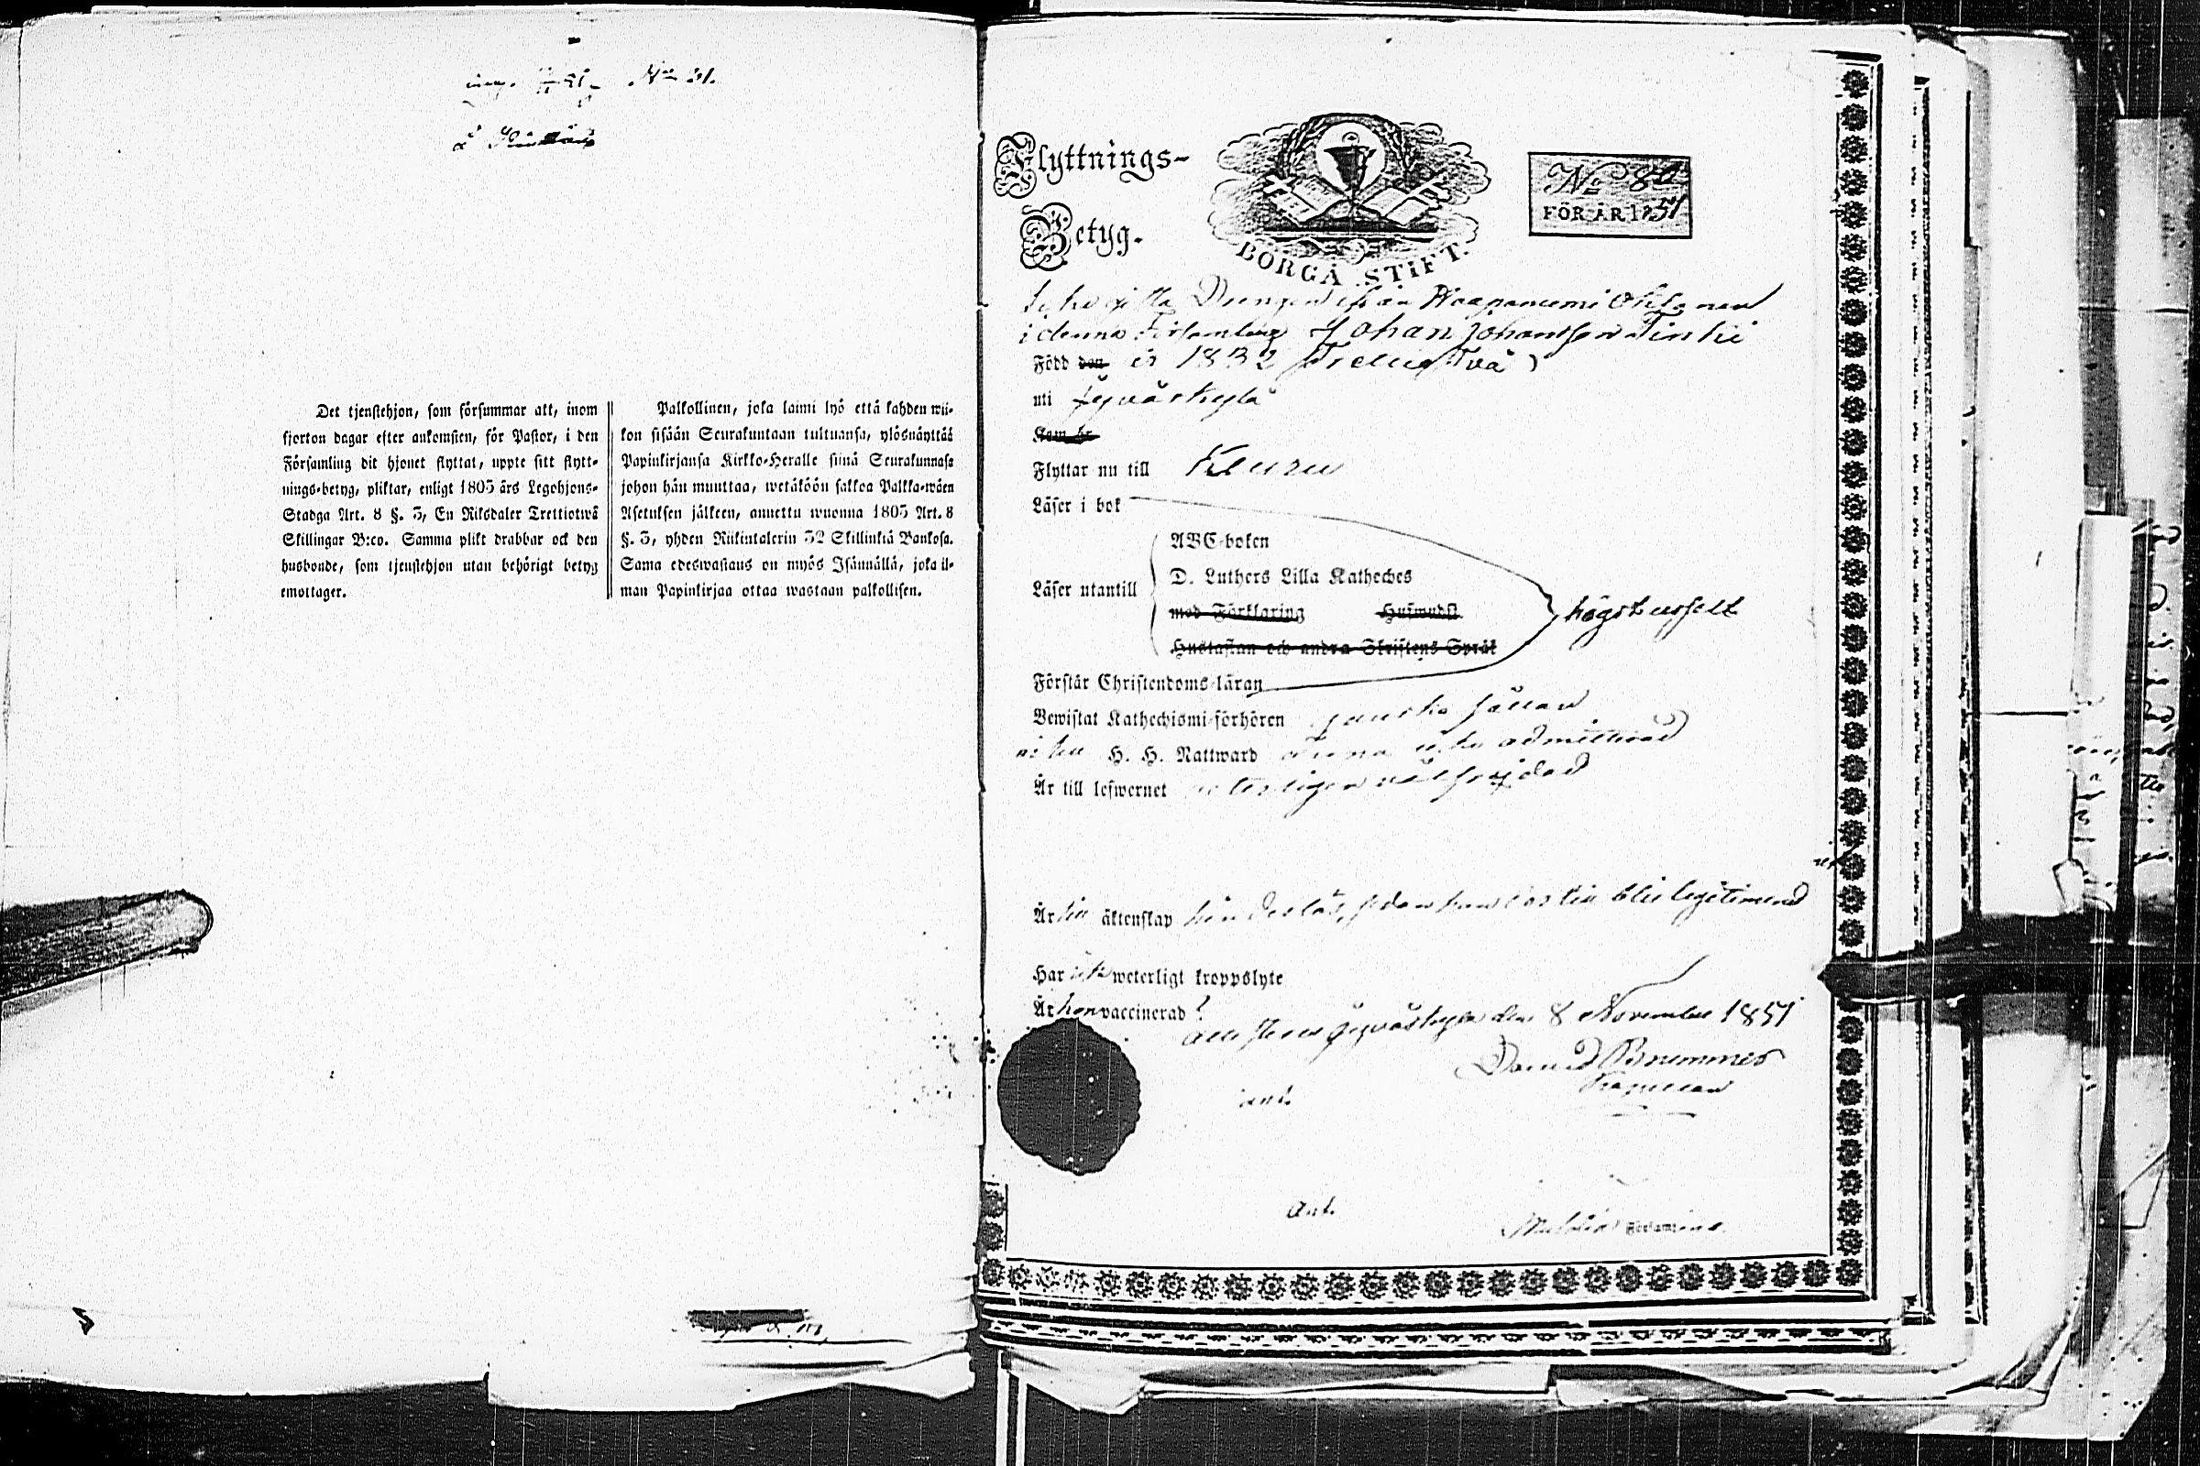 No 31.
å
Det tjenstehjon, som försummar att, inom
fjorton dagar efter ankomsten, för Pastor, i den
Församling dit hjonet flyttat, uppte sitt flytt-
nings-betyg, pliktar, enligt 1805 års Legohjons-
Stadga Art. 8 §. 3, En Riksdaler Trettiotwå
Skillingar B:co. Samma plikt drabbar ock den
husbonde, som tjenstehjon utan behörigt betyg
emottager.
Palkollinen, joka laimi lyö että kahden wii-
kon sisään Seurakuntaan tultuansa, ylösnäyttää
Papinkirjansa Kirkko-Heralle siinä Seurakunnasa
johon hän muuttaa, wetäköön sakkoa Palkka-wäen
Asetuksen jälkeen, annettu wuonna 1805 Art. 8
§. 3, yhden Riikintalerin 32 Skillinkiä Bankosa.
Sama edeswastaus on myös Isännällä, joka il-
man Papinkirjaa ottaa wastaan palkollisen.
Flyttnings-
Betyg.
BORGÅ STIFT.
No 80
FÖR ÅR 1851
Drengen ifrån Haapaniemi
i denna Församling Johan Johansson
Född den år 1832 Trettio Två)
uti Jyväskylä
Kom hr
Flyttar nu till Keuru
Läser i bok
ABC-boken
D. Luthers Lilla Katheches
Läser utantill
med Förklaring
Hustaflan och andra Skriftens Språk
högst usselt
Förstår Christendoms-läran
Bewistat Kathechismi-förhören ganska sällan
H. H. Nattward ännu icke admitterad
Är till lefwernet välfrejdad
Är äktenskap legitimerad
Har icke weterligt kroppslyte
Är han vaccinerad?
Jyväskylä den 8 November 1851
David Brummer
Kapellan
Församling.